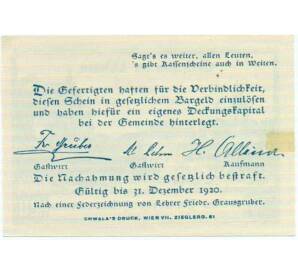 Sagt's es weiter, allen Leuten,
's gibt Kassenscheine auch in Weiten.
Die Gefertigten haften für die Verbindlichkeit,
diesen Schein in gesetzlichem Bargeld einzulösen
und haben hiefür ein eigenes Deckungskapital
bei der Gemeinde hinterlegt.
Gastwirt Gastwirt Kaufmann
Die Nachahmung wird gesetzlich bestraft.
Gültig bis 31. Dezember 1920.
Nach einer Federzeichnung von Lehrer Friedr. Grausgruber.
CHWALA'S DRUCK, WIEN VII. ZIEGLERG. 61